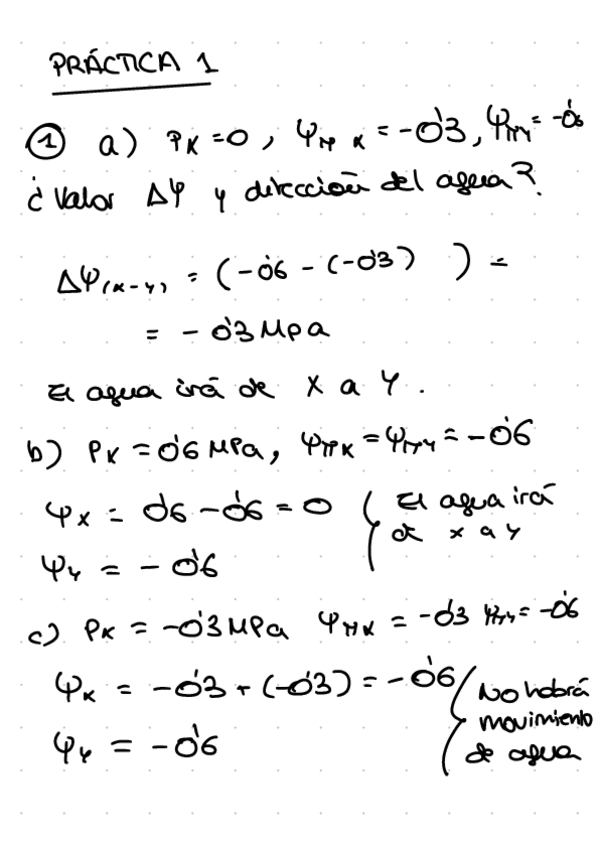 PRÁCTICA 1
① a) Px = 0, Ψπ x = -0'3, Ψπy = -0'6
¿Valor ΔΨ y dirección del agua?
ΔΨ(x-y) = (-0'6 - (-0'3) ) =
= -0'3 Mpa
El agua irá de X a Y.
b) Px = 0'6 MPa, Ψπx = Ψπy = -0'6
Ψx = 0'6 - 0'6 = 0 { El agua irá
de x a y
Ψy = - 0'6
c) Px = -0'3 MPa Ψπx = -0'3 Ψπy = -0'6
Ψx = -0'3 + (-0'3) = -0'6 { No habrá
movimiento
Ψy = -0'6 de agua